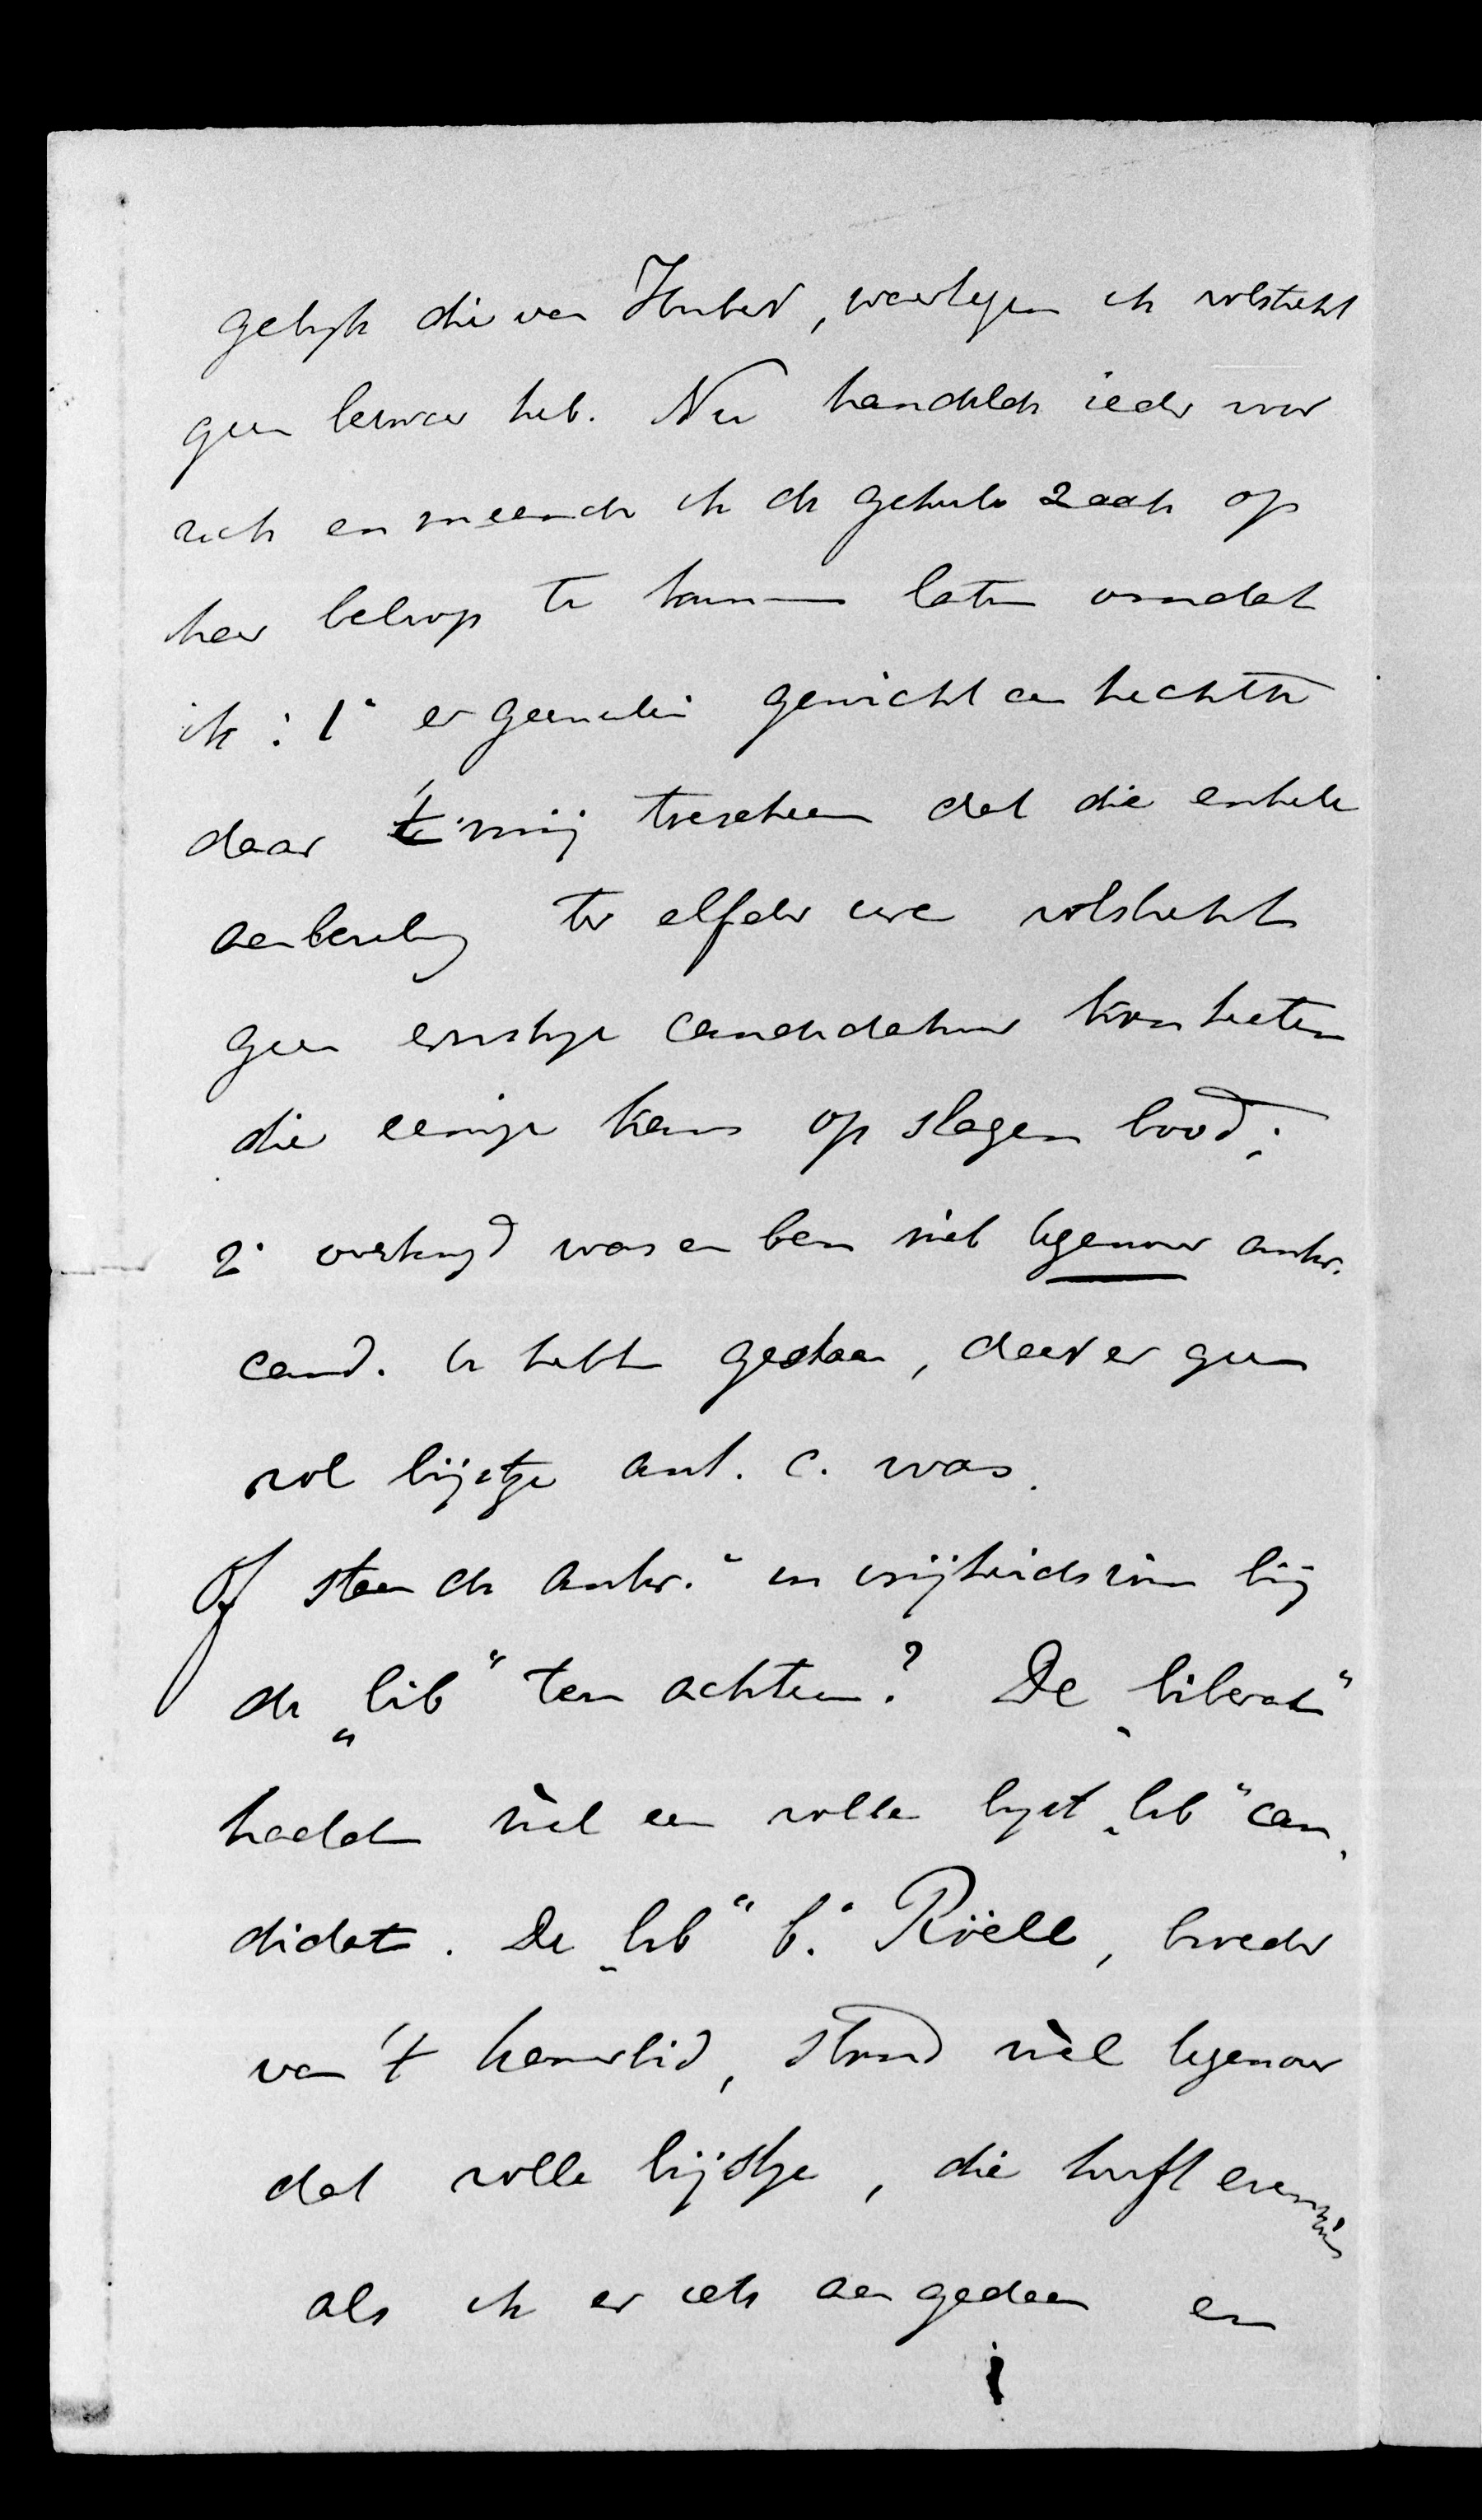 gelijk die van Hubert, waartegen ik volstrekt
geen bezwaar heb. Nu handelde ieder voor
zich en meende ik de geheele zaak op
haar beloop te kunnen laten omdat
ik : 1° er geenerlei gewicht aan hechtte
daar 't mij toescheen dat die enkele
aanbeveling ter elfder ure volstrekt
geen ernstige candidatuur kon heeten
die eenige kans op slagen bood;
2° overtuigd was en ben niet tegenover antir.
cand. te hebben gestaan, daar er geen
vol lijstje ant. c. was.
Of staan de antir." in vrijheidszin bij
de „lib" ten achteren? De „liberalen"
hadden wèl een volle lijst „lib" can-
didaten. De „lib" Röell, broeder
van 't kamerlid, stond wèl tegenover
dat volle lijstje, die heeft evenmin
als ik er iets aan gedaan en